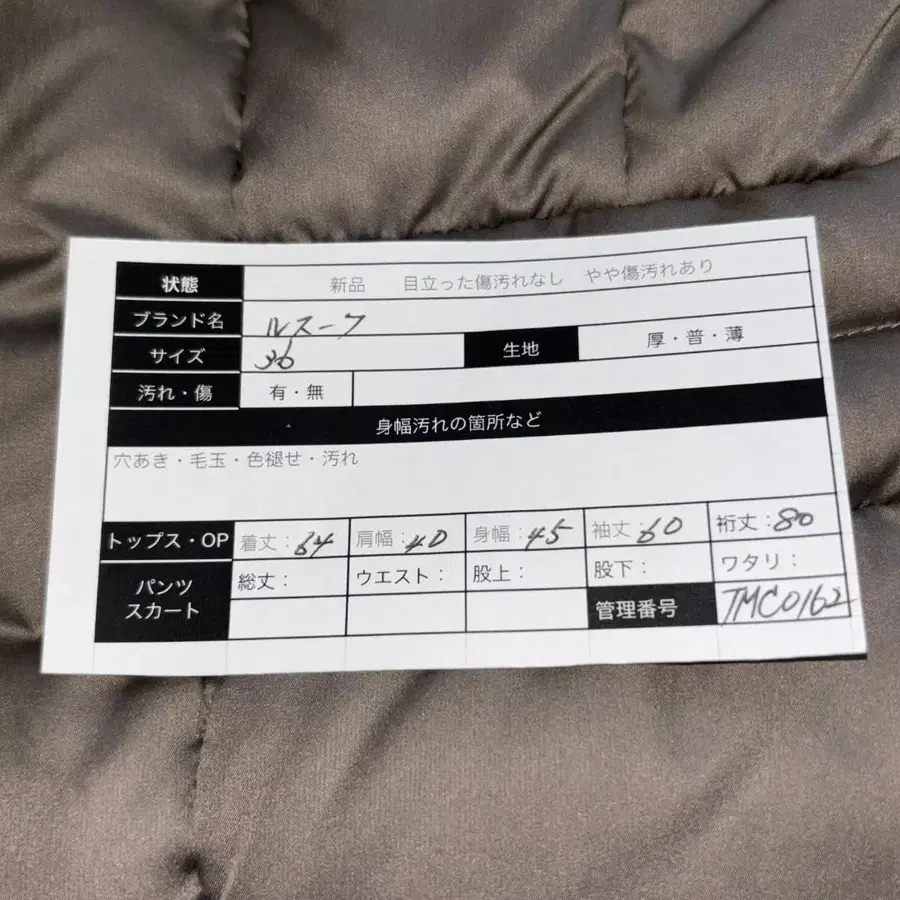 状態 新品 目立った傷汚れなし やや傷汚れあり
ブランド名 ルスーク
サイズ 36 生地 厚・普・薄
汚れ・傷 有・無
身幅汚れの箇所など
穴あき・毛玉・色褪せ・汚れ
トップス・OP 着丈：64 肩幅：40 身幅：45 袖丈：60 裄丈：80
パンツ スカート 総丈： ウエスト： 股上： 股下： ワタリ：
管理番号 TMC0162